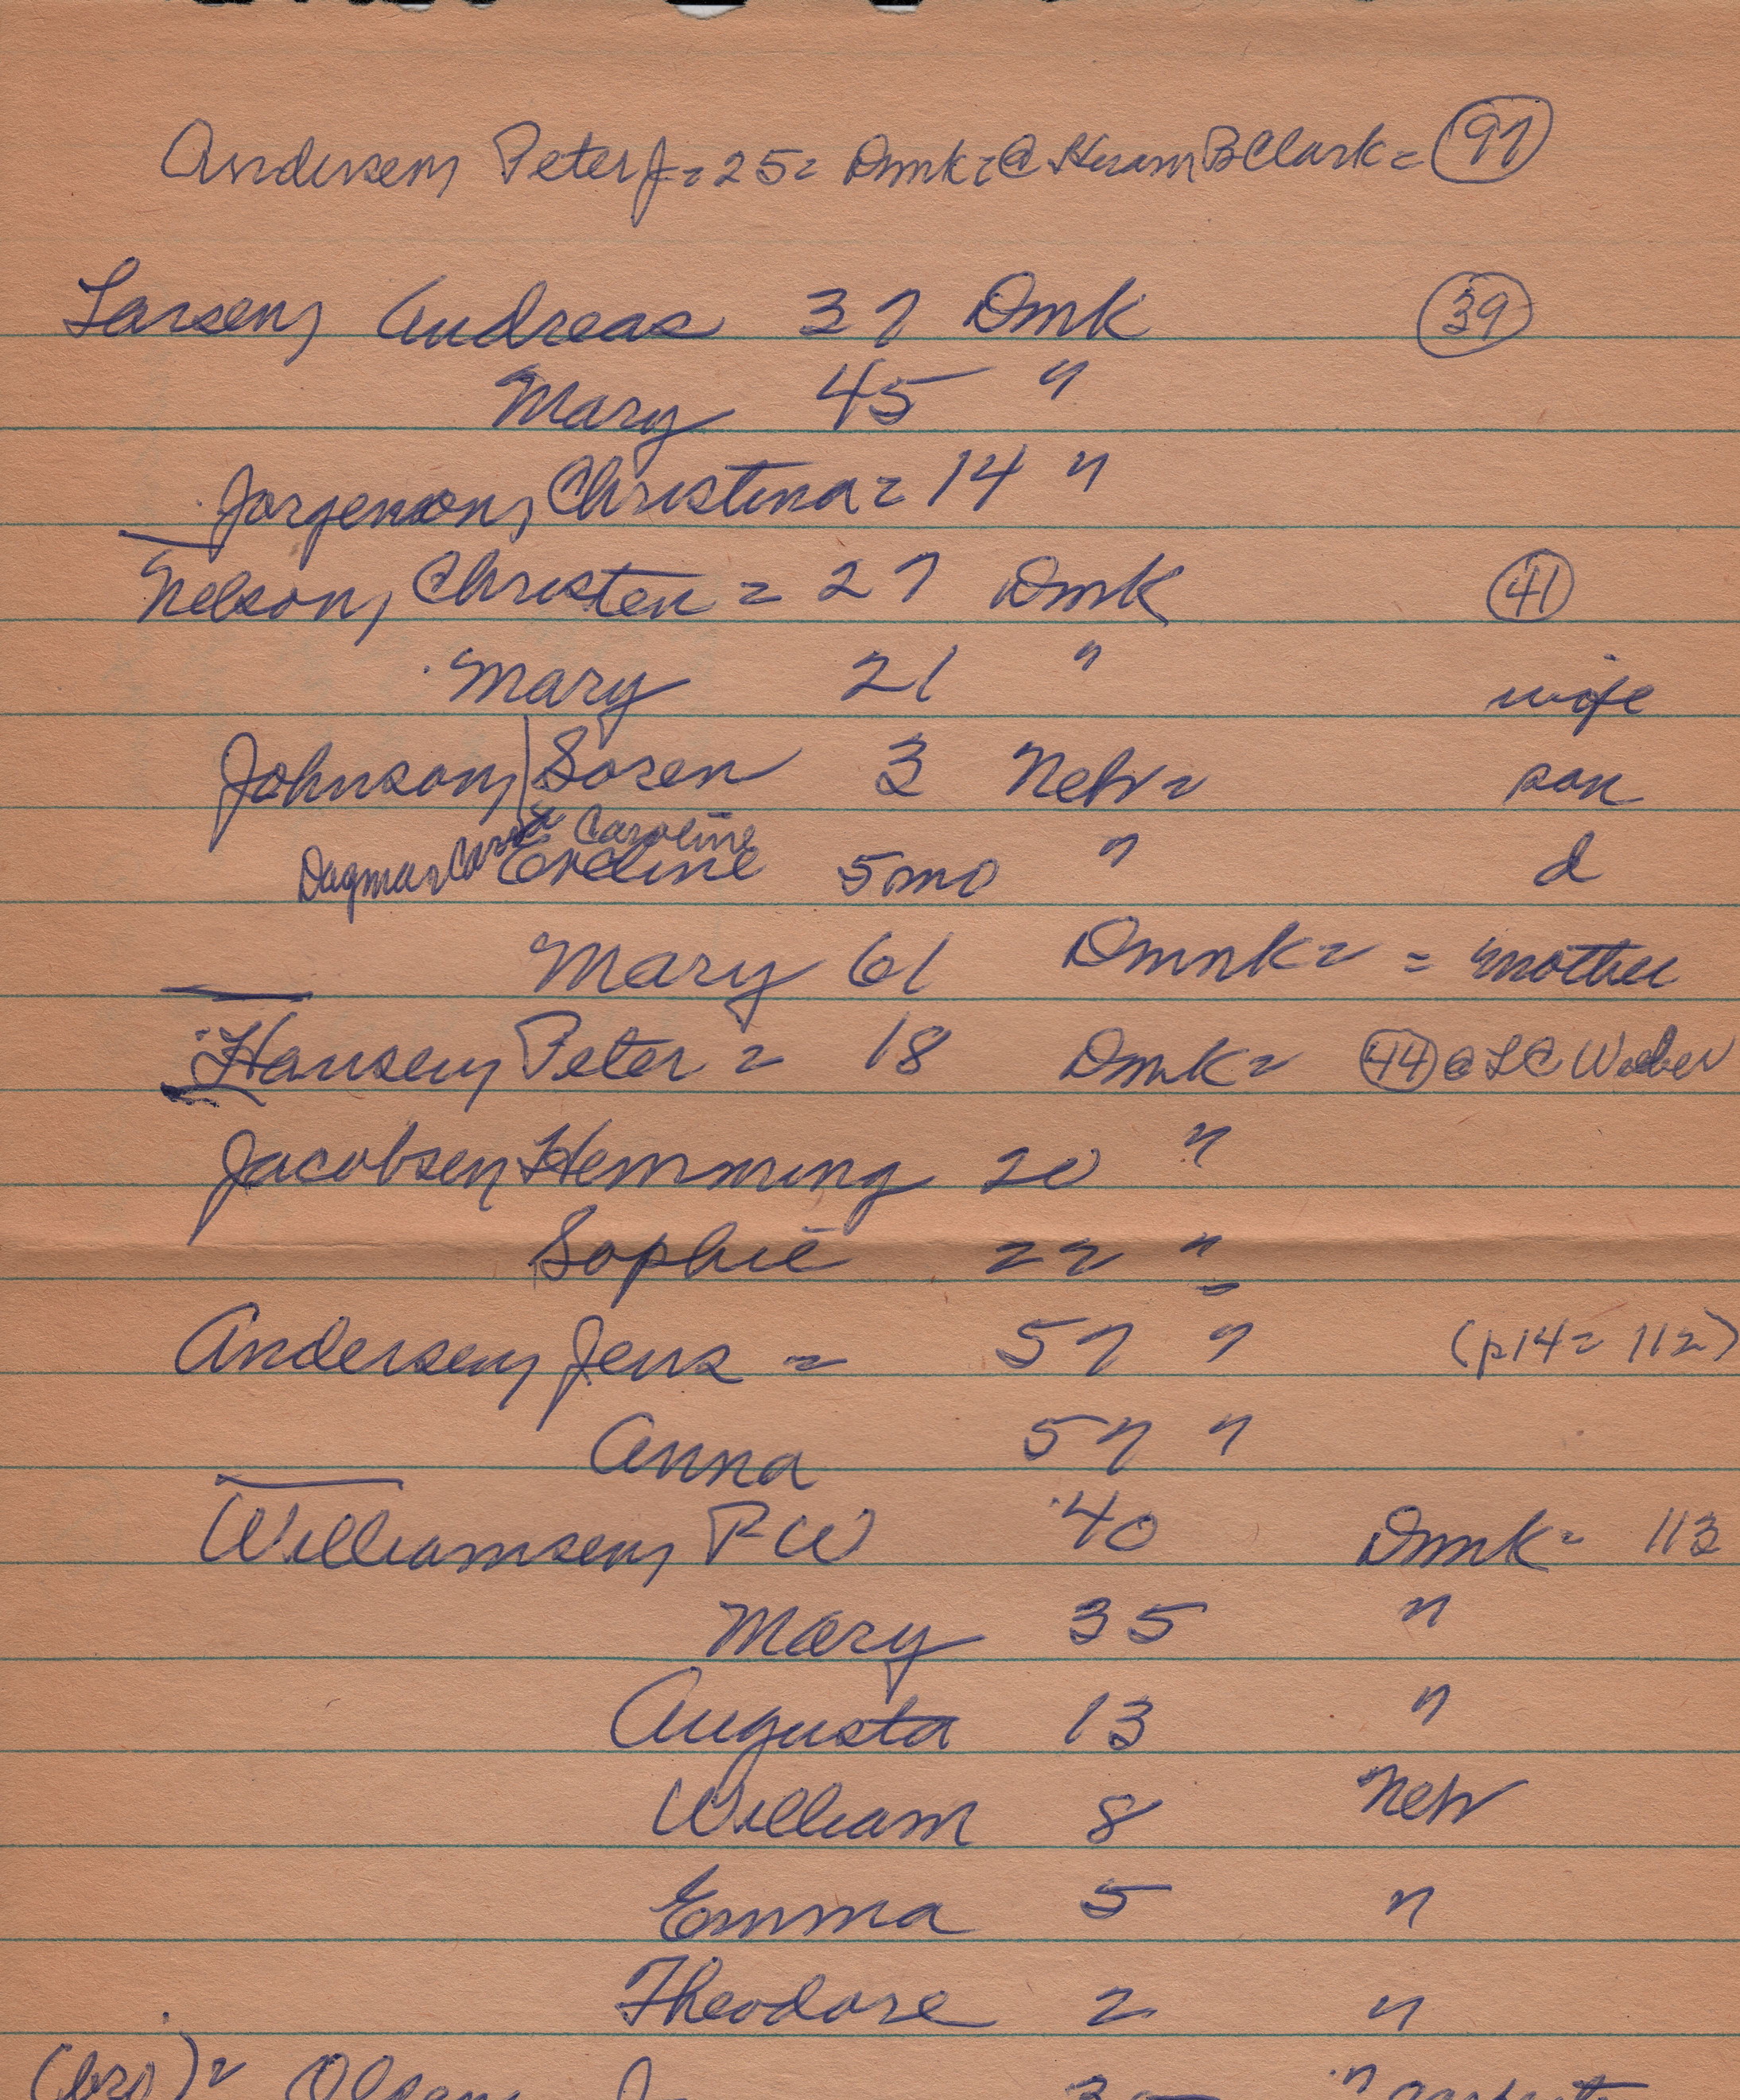 Andersen, Peter J = 25 = Dmk = @ Hiram B Clark = 97
Larsen, Andreas 37 Dmk 39
Mary 45 "
Jorgenson, Christina = 14 "
Nelson, Christen = 27 Dmk 41
Mary 21 " wife
Johnson, Soren 3 Nebr = son
Caroline
Dagmar Eveline 5 mo " d
Mary 61 Dmnk = = mother
Hansen, Peter = 18 Dmk = 44 @ LC Weber
Jacobsen, Hemming 20 "
Sophie 22 "
Andersen, Jens = 57 " (p14 = 112)
Anna 57 "
Williamsen, P W 40 Dmk = 113
Mary 35 "
Augusta 13 "
William 8 Nebr
Emma 5 "
Theodore 2 "
(bro) = Olsen,